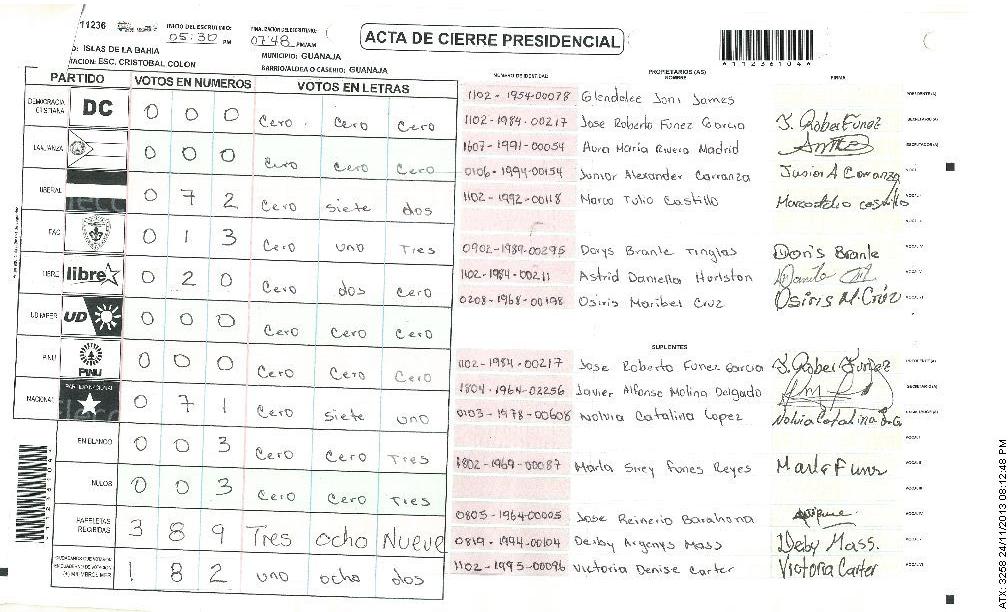 11236 INICIO DEL ESCRUTINIO: 05:30 PM FINALIZACION DEL ESCRUTINIO: 07:48 PM/AM
ACTA DE CIERRE PRESIDENCIAL
O: ISLAS DE LA BAHIA MUNICIPIO: GUANAJA
TACION: ESC. CRISTOBAL COLON BARRIO/ALDEA O CASERIO: GUANAJA
PARTIDO VOTOS EN NUMEROS VOTOS EN LETRAS
DEMOCRACIA CRISTIANA DC 0 0 0 Cero Cero Cero
ALIANZA 0 0 0 Cero Cero Cero
LIBERAL 0 7 2 Cero siete dos
PAC 0 1 3 Cero uno Tres
LIBRE libre 0 2 0 Cero dos Cero
UD/FAPER UD 0 0 0 Cero Cero Cero
PINU PINU 0 0 0 Cero Cero Cero
NACIONAL PARTIDO NACIONAL 0 7 1 Cero siete uno
EN BLANCO 0 0 3 Cero Cero Tres
NULOS 0 0 3 Cero Cero Tres
PAPELETAS RECIBIDAS 3 8 9 Tres ocho Nueve
1 8 2 uno ocho dos
NUMERO DE IDENTIDAD PROPIETARIOS (AS) NOMBRE FIRMA
1102-1954-00078 Glendolee Joni James
1102-1984-00217 Jose Roberto Funez Garcia J. Rober Funez
1607-1991-00054 Aura Maria Rivera Madrid
0106-1994-00154 Junior Alexander Carranza Junior A Carranza
1102-1992-00118 Marco Tulio Castillo Marco tulio castillo
0902-1989-00295 Dorys Brante Tinglas Doris Brante
1102-1984-00211 Astrid Daniella Hurlston
0208-1968-00198 Osiris Maribel Cruz Osiris M. Cruz
SUPLENTES
1102-1984-00217 Jose Roberto Funez Garcia J. Rober Funez
1804-1964-02256 Javier Alfonso Molina Delgado
0103-1978-00608 Nolvia Catalina Lopez
1802-1969-00087 Marla Sirey Funes Reyes Marla Funez
0803-1964-00005 Jose Reinerio Barahona
0819-1994-00104 Deiby Argenys Mass Deby Mass.
1102-1995-00096 Victoria Denise Carter Victoria Carter
ATX: 3258 24/11/2013 08:12:48 PM